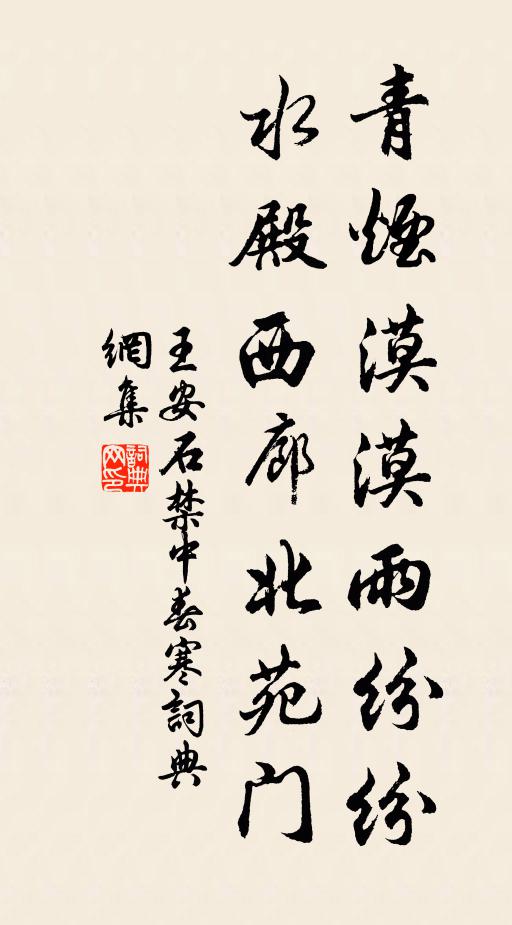 青煙漠漠雨紛紛
水殿西廊北苑门
王安石禁中春寒詞典
網集
詞典网印